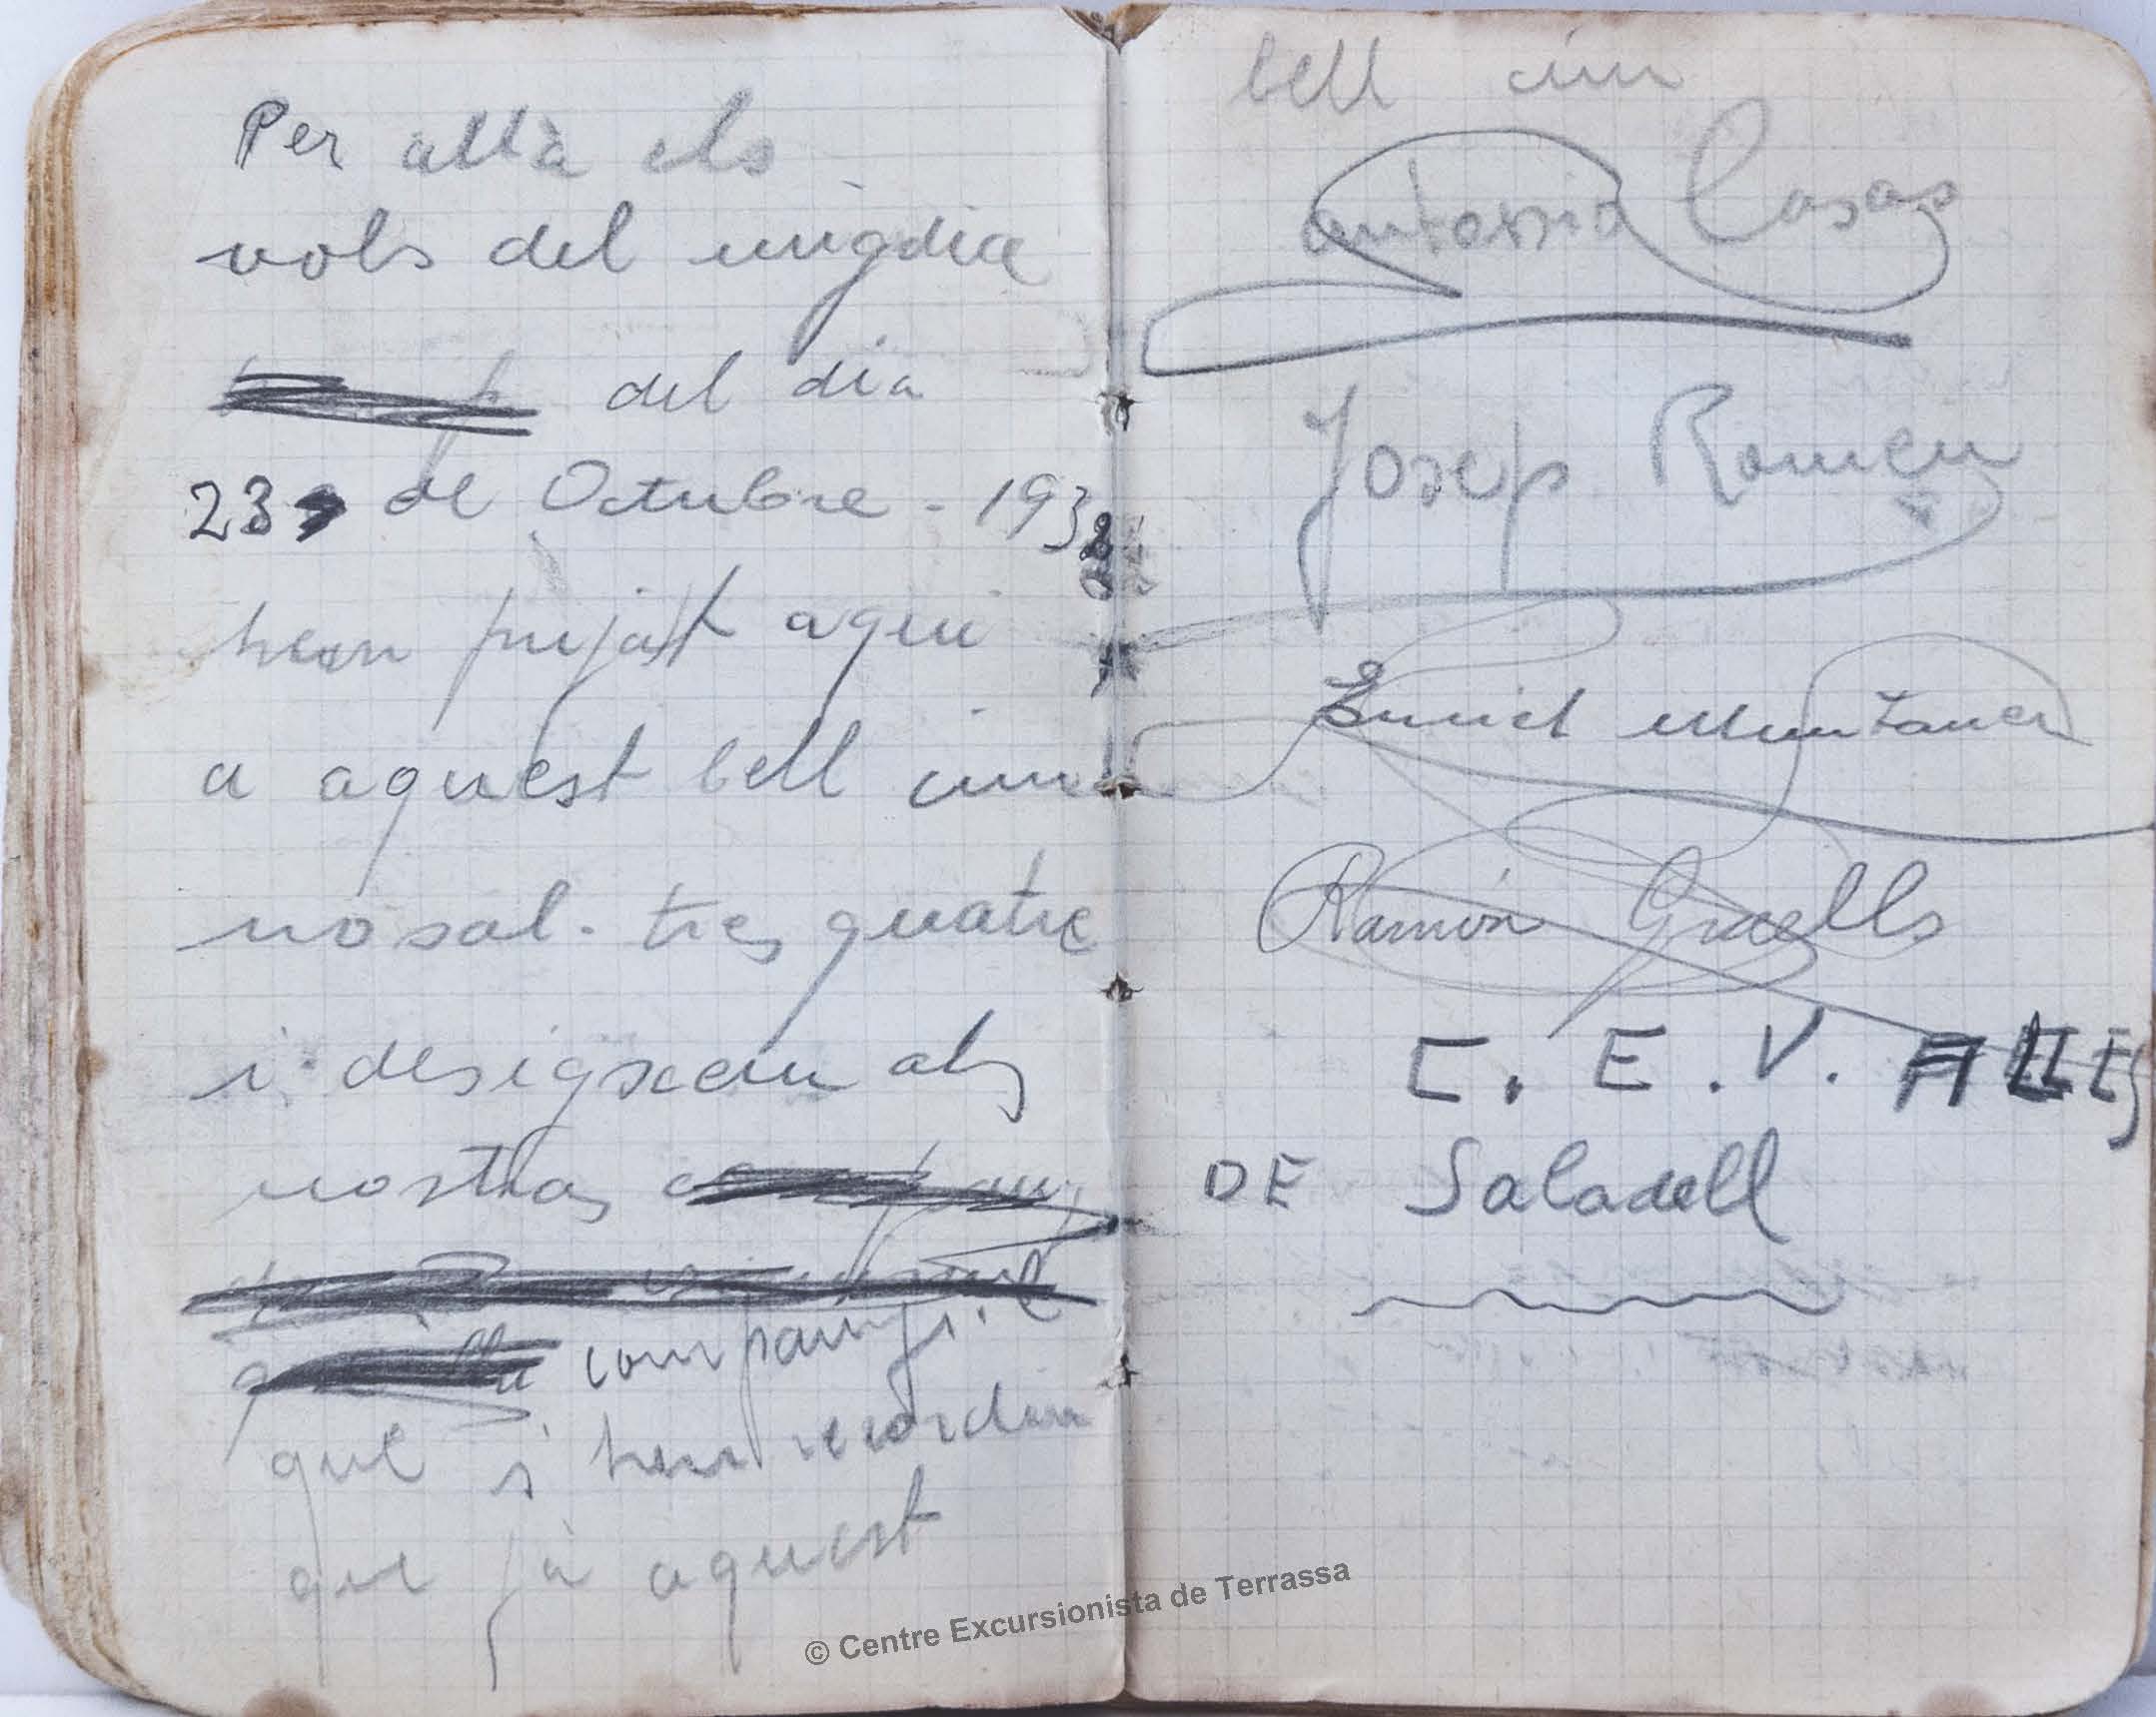 Per allà els
vols del migdia
del dia
23 de Octubre - 1932
hem pujat aqui
a aquest bell cim
nosal. tres quatre
i desigxem als
nostras
companys. e
que s' hem recordin
que fà aquest
bell cim
Antonia Casas
Josep Romeu
Enrich Muntaner
Ramón Graells
C. E. V. ALLES
DE Saladell
© Centre Excursionista de Terrassa